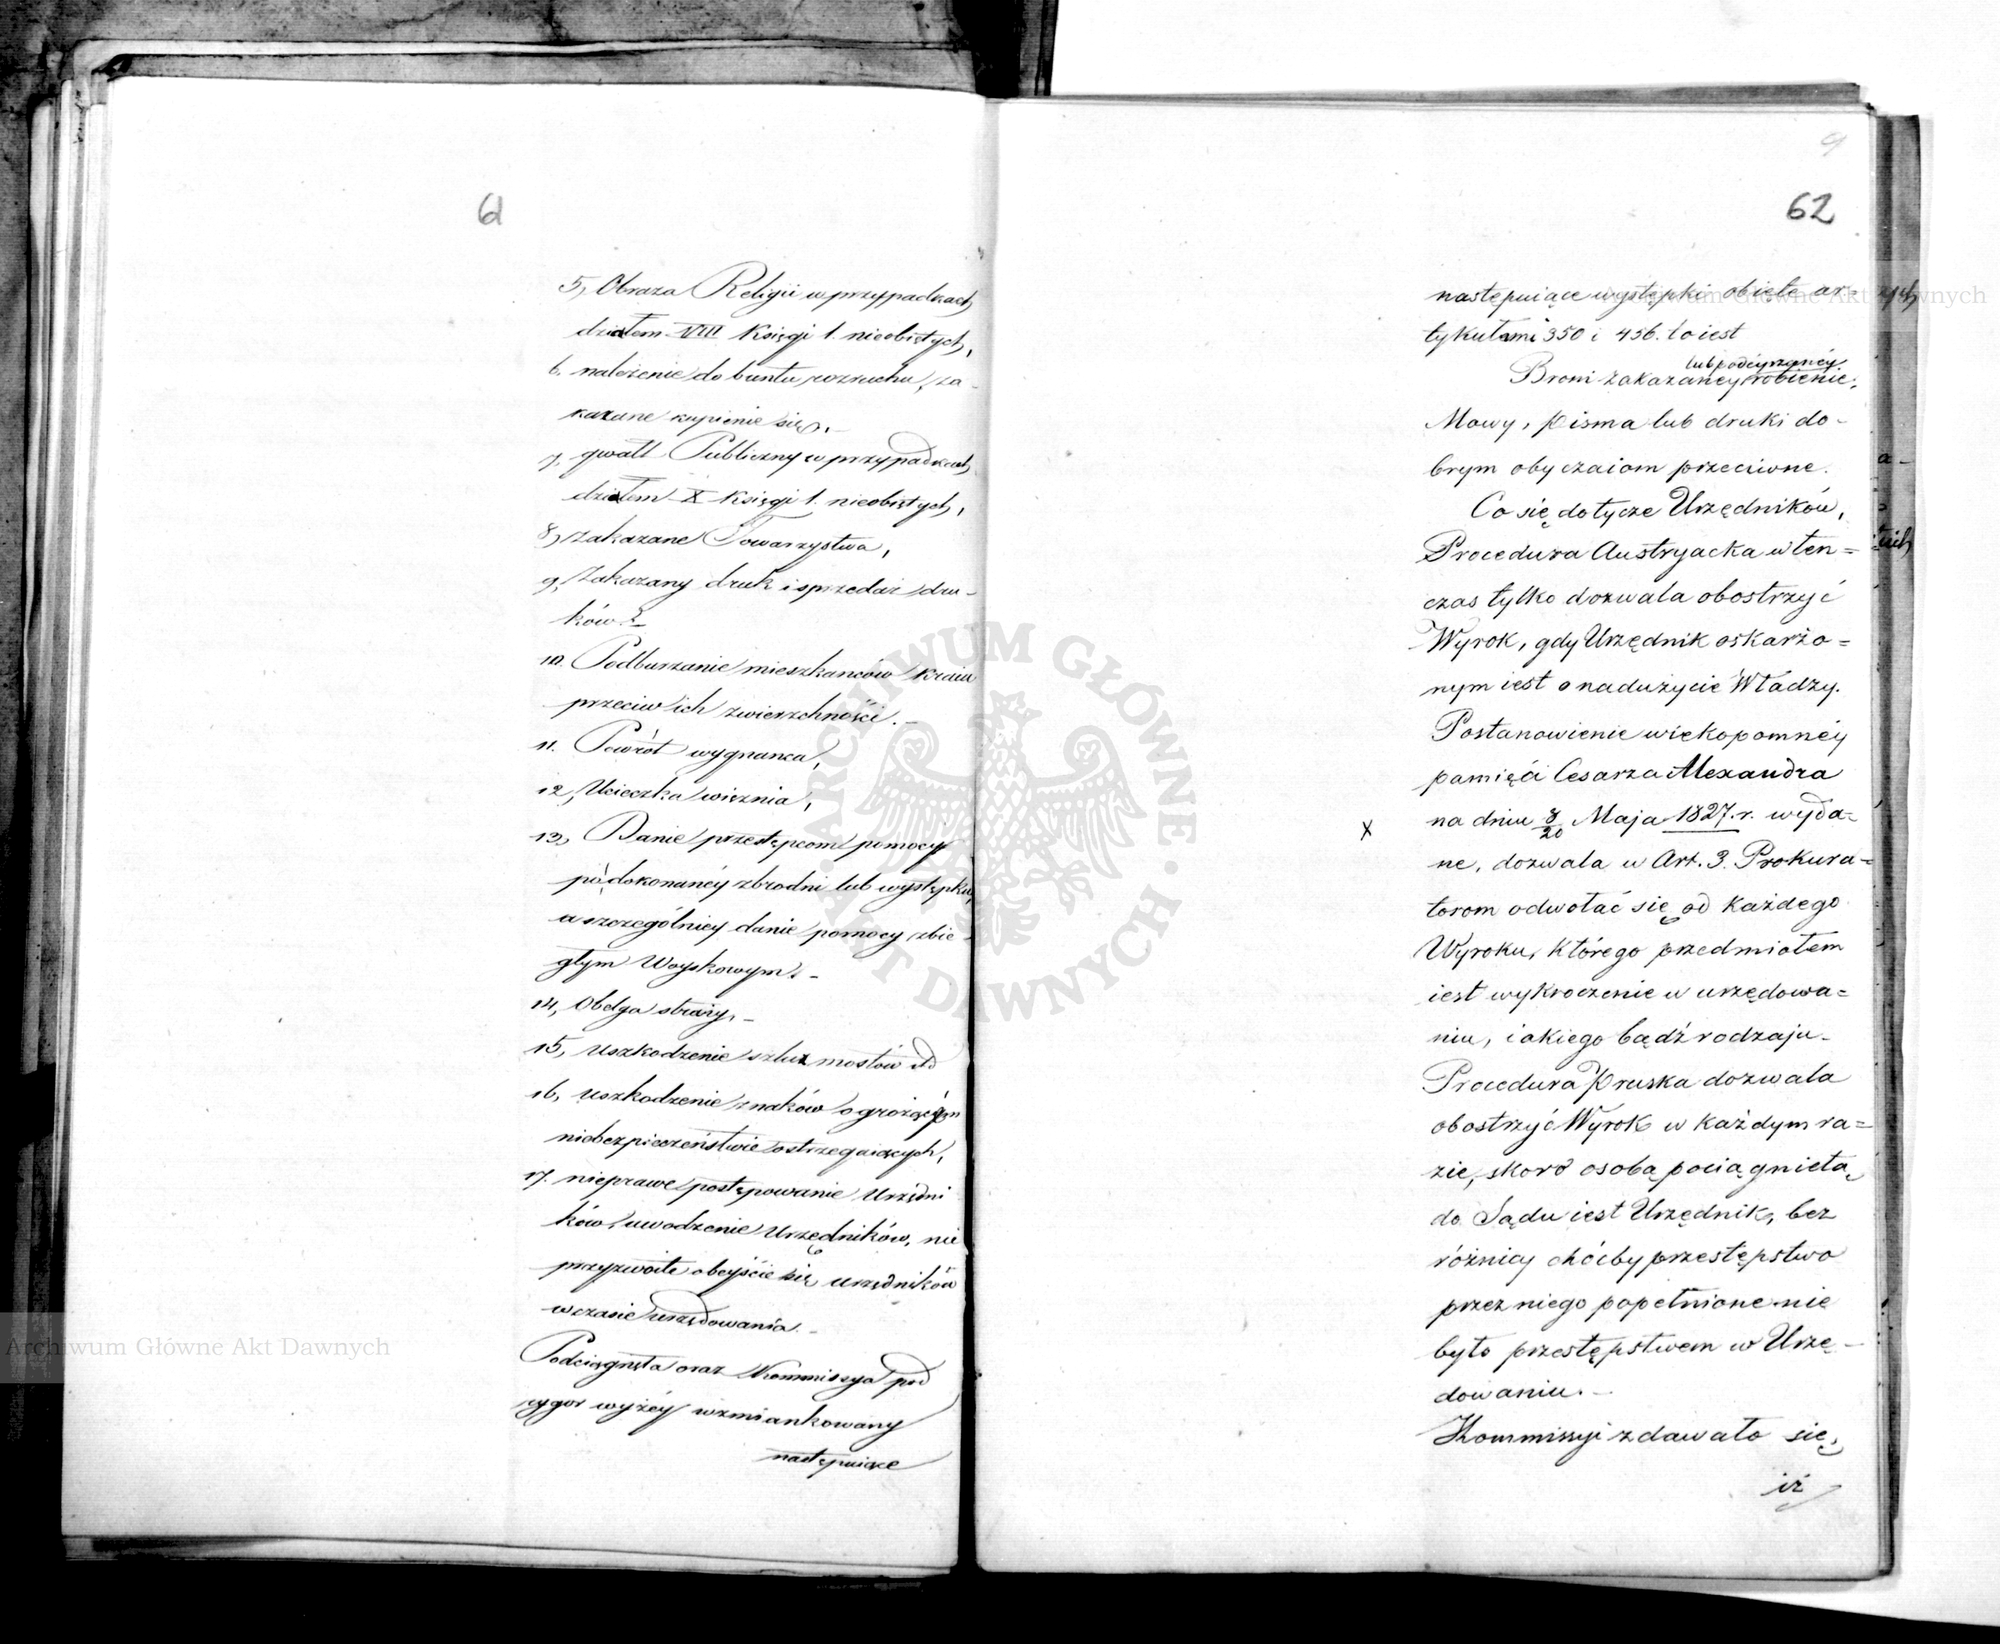 61
5, Obraza Religii w przypadkach
działem VIII Księgi 1. nieobiętych,
6. należenie do buntu rozruchu, za-
kazane kupienie się,.-
7, gwałt Publiczny w przypadkach
działem X Księgi 1. nieobiętych,
8, Zakazane Towarzystwa,
9, Zakazany druk i sprzedaż dru-
ków.-
10. Podburzanie mieszkanców kraiu
przeciw ich zwierzchności.-
11. Powrót wygnanca,
12, Ucieczka więznia,
13, Danie przestępcom pomocy
po dokonanéy zbrodni lub występku,
a szczególniey danie pomocy zbie-
głym Woyskowym.-
14, Obelga straży,-
15, Uszkodzenie szluz mostów itd
16, uszkodzenie znaków o grożącym
niebezpieczeństwie ostrzegaiących,
17. nieprawe postępowanie Urzędni
ków, uwodzenie Urzędników, nie
przyzwoite obeyście się urzędników
w czasie urzędowania.-
Podciągnęta oraz Kommissya pod
rygor wyżéy wzmiankowany
następuiące
9
62
następuiące występki obięte ar-
tykułami 350 i 456. to iest
lub podeyrzanéy
Broni zakazaney robienie,
Mowy, pisma lub druki do-
brym obyczaiom przeciwne.
Co się dotycze Urzędników,
Procedura Austryacka w ten=
czas tylko dozwala obostrzyć
Wyrok, gdy Urzędnik oskarżo=
nym iest o nadużycie Władzy.
Postanowienie wiekopomnéy
pamięci Cesarza Alexandra
x na dniu 8/20 Maja 1827. r. wyda=
ne, dozwala w Art. 3. Prokura=
torom odwołać się od każdego
Wyroku, którego przedmiotem
iest wykroczenie w urzędowa=
niu, iakiego bądź rodzaju.-
Procedura Pruska dozwala
obostrzyć Wyrok w każdym ra=
zie, skoro osobą pociągnietą
do Sądu iest Urzędnik, bez
różnicy chócby przestępstwo
przez niego popełnione nie
było przestępstwem w Urzę-
dowaniu.-
Kommissyi zdawało się,
iż
Archiwum Główne Akt Dawnych
Archiwum Główne Akt Dawnych
ARCHIWUM GŁÓWNE AKT DAWNYCH